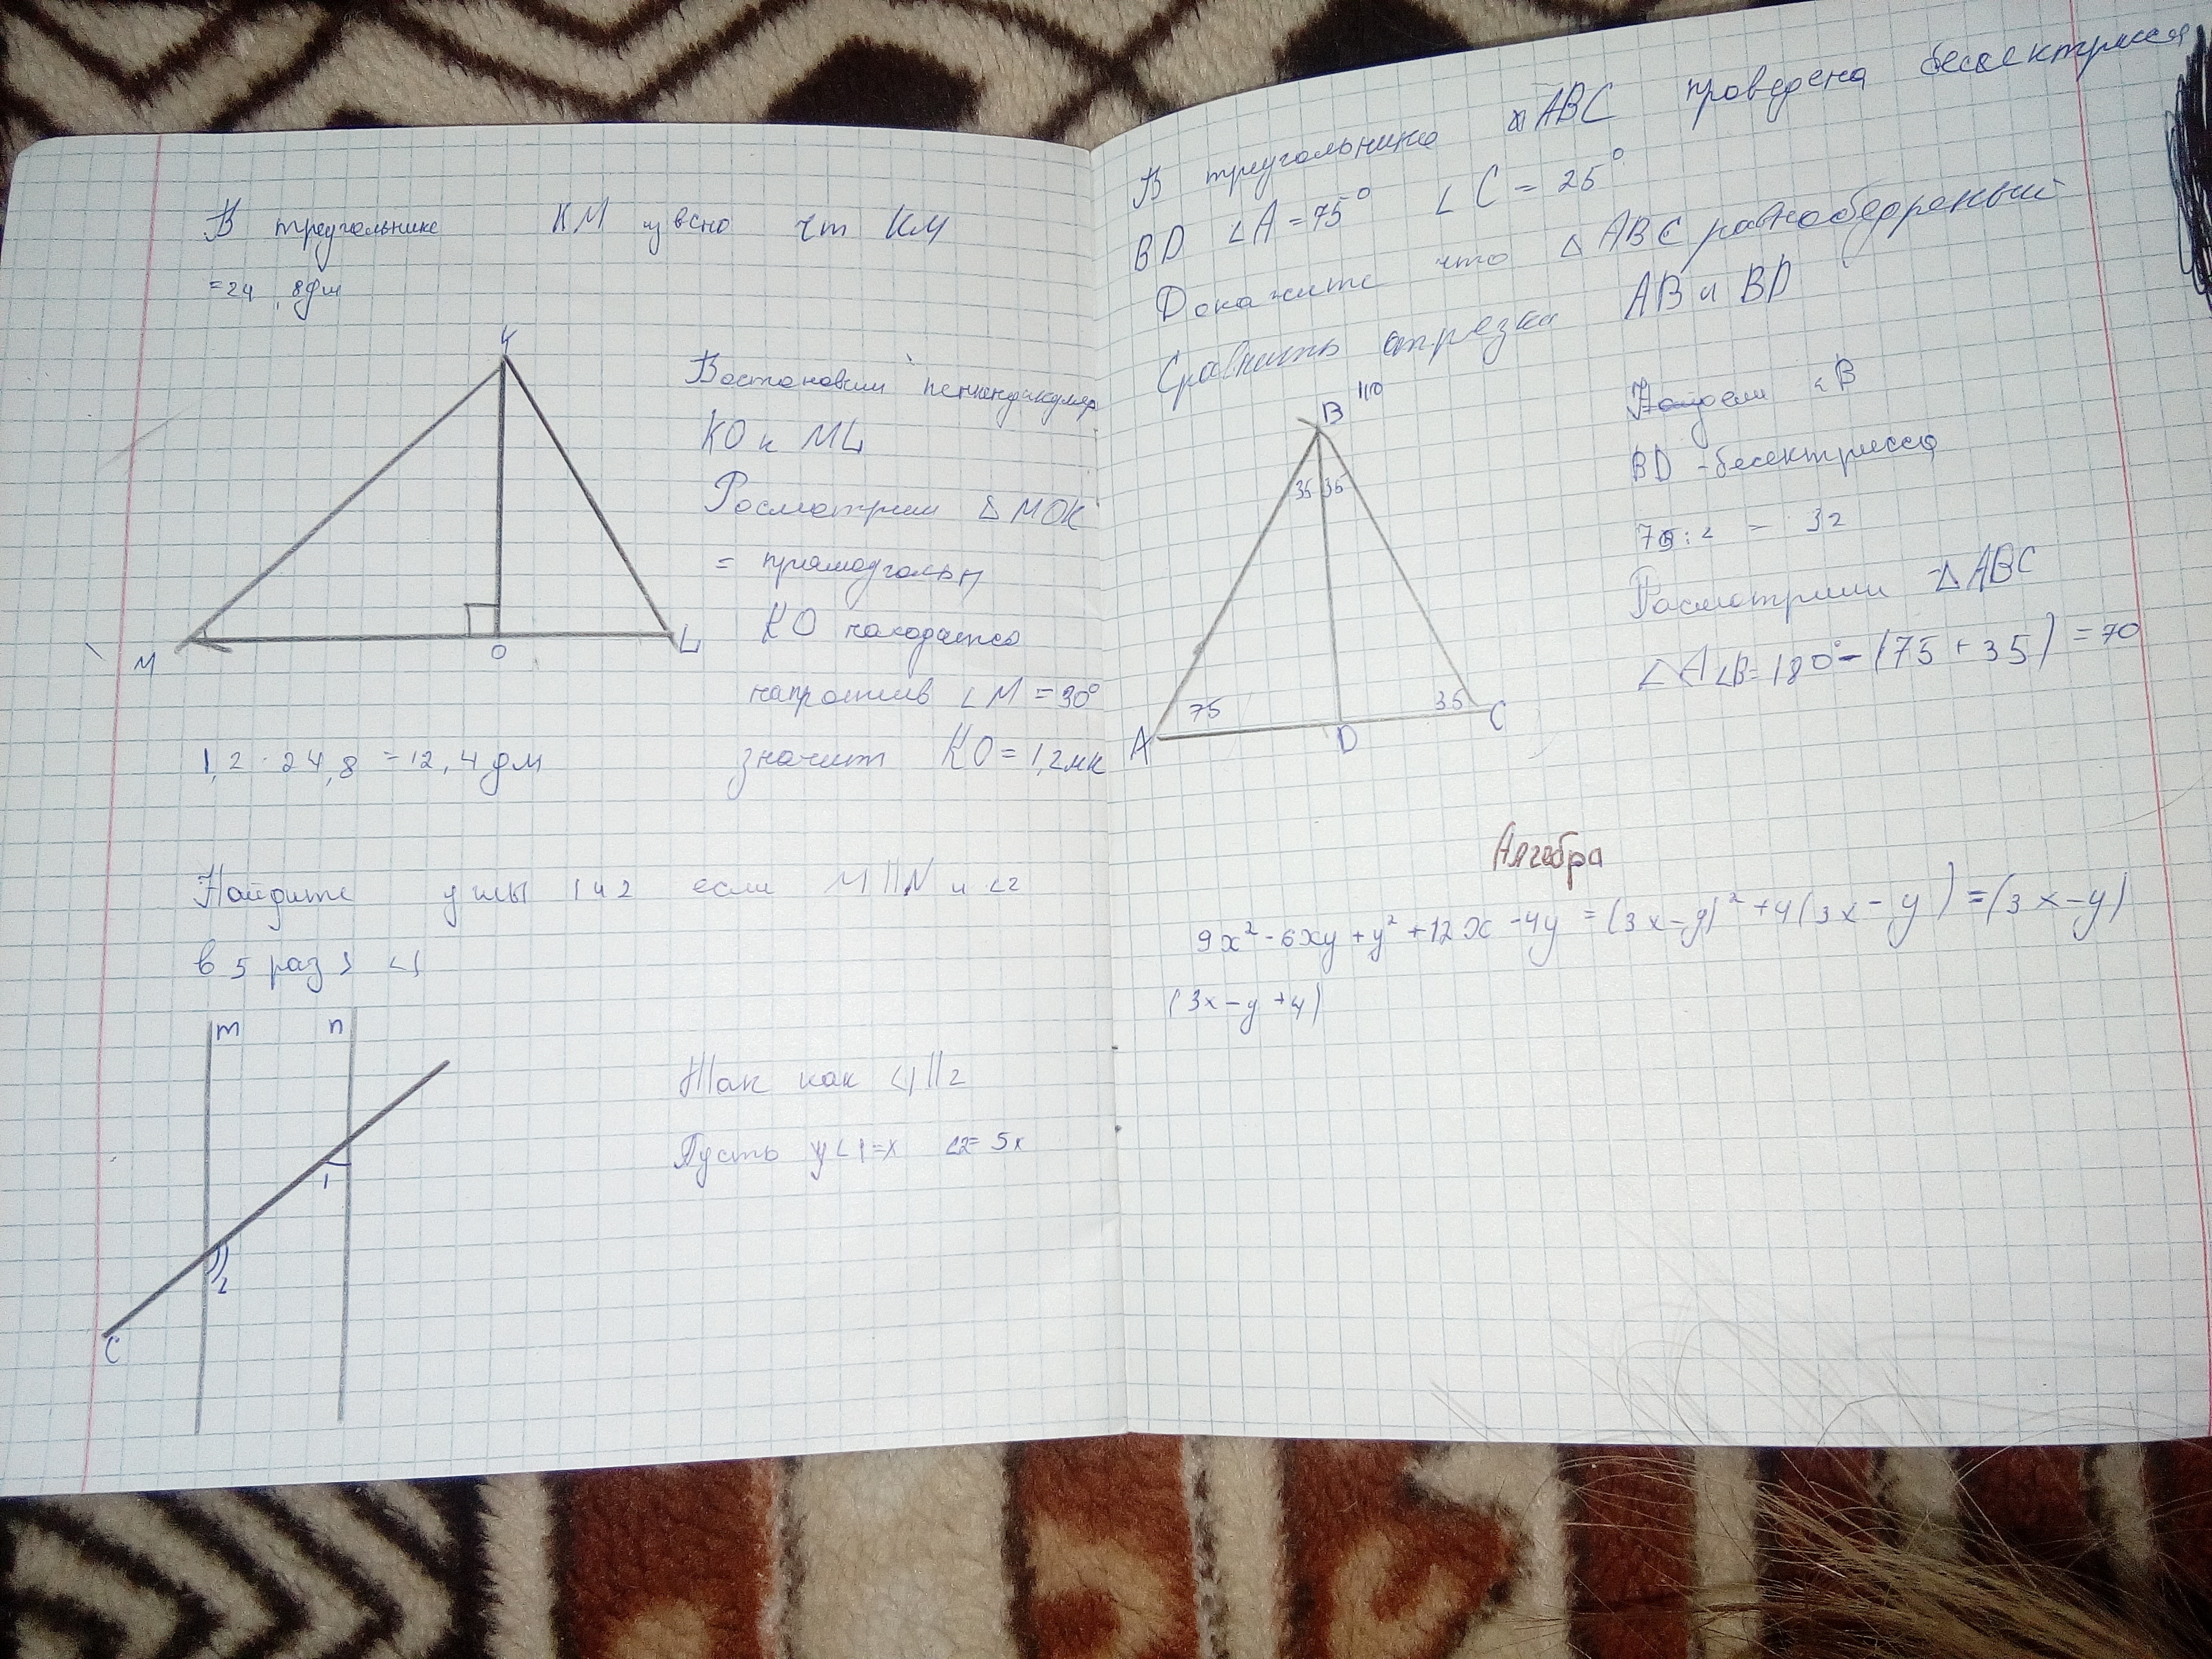 В треугольнике КМ извсно чт КМ
=24,8дм
К
М
О
L
Востановим пенпендикуляр
КО к ML
Росмотрим Δ МОК
= прямоугольн
КО находится
напротив ∠М = 30°
значит КО = 1,2мк
1,2 · 24,8 = 12,4 дм
Найдите углы 1 и 2 если М || N и ∠2
в 5 раз > ∠1
m
n
1
2
С
Так как ∠1 || 2
Пусть у∠1=x ∠2=5x
В треугольнике АВС проведена бессектрисся
BD ∠A = 75° ∠C = 25°
Докажите что Δ АВС равнобедреный
Сравнить отрезки АВ и BD
В 110
35 35
75
35
А
D
С
Найдем ∠В
BD - бесектрисса
70 : 2 = 32
Росмотрим Δ АВС
∠A ∠B = 180° - (75 + 35) = 70
Алгебра
9x² - 6xy + y² + 12x - 4y = (3x - y)² + 4(3x - y) = (3x - y)
(3x - y + 4)